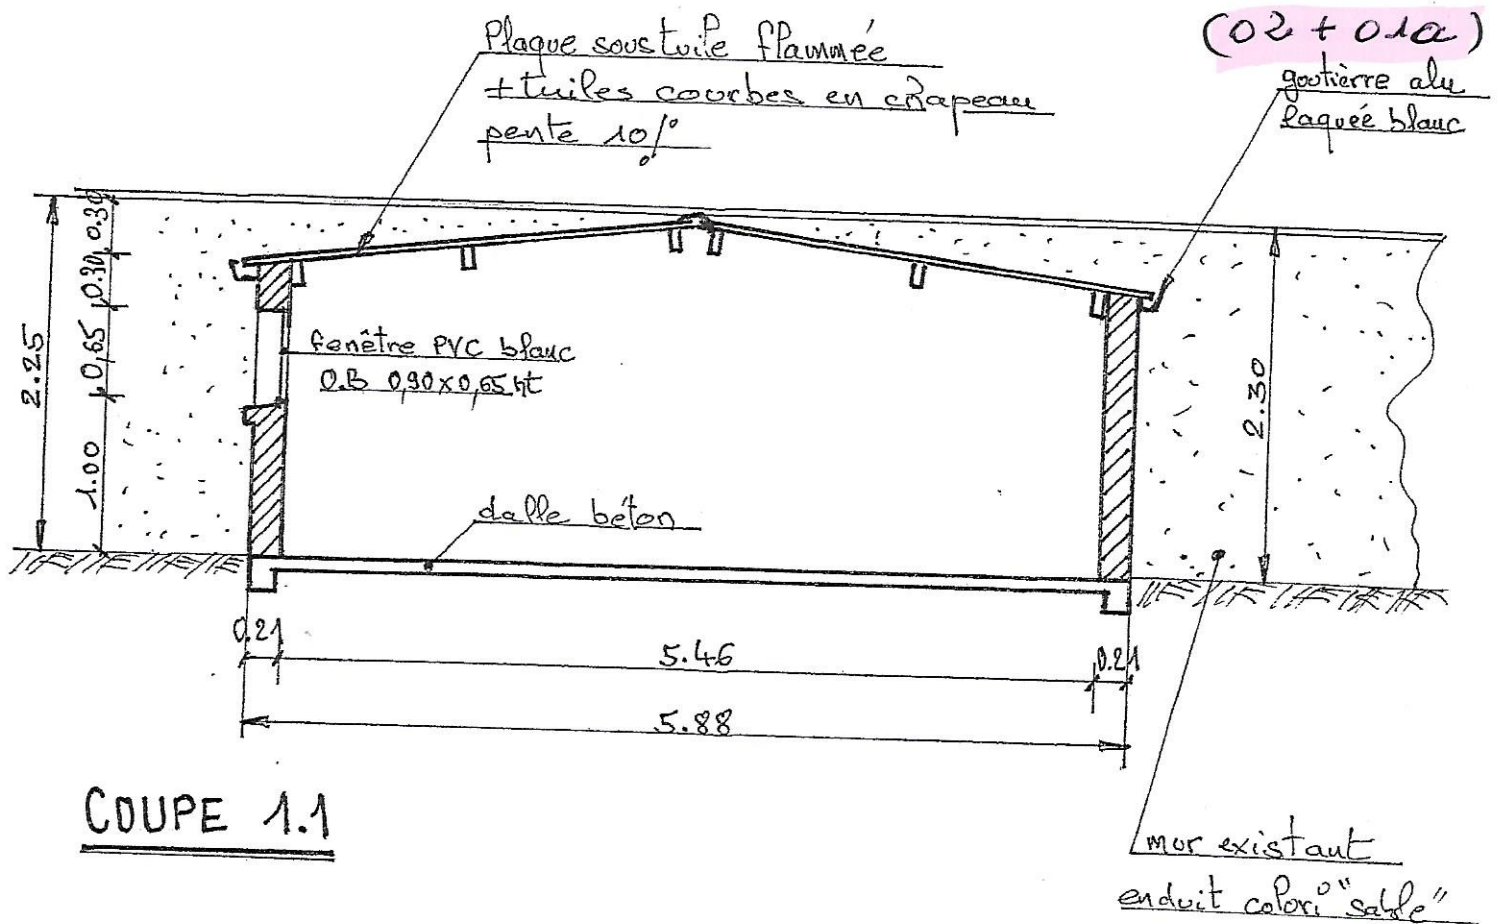 (02 + 01a)
Plaque sous tuile flammée
+ tuiles courbes en chapeau
pente 10%
goutièrre alu
laquéé blanc
0.30
0.30
0,65
1.00
2.25
fenêtre PVC blanc
O.B 0,90x0,65 ht
2.30
dalle béton
0.21
5.46
0.21
5.88
COUPE 1.1
mur existant
enduit colori "sable"